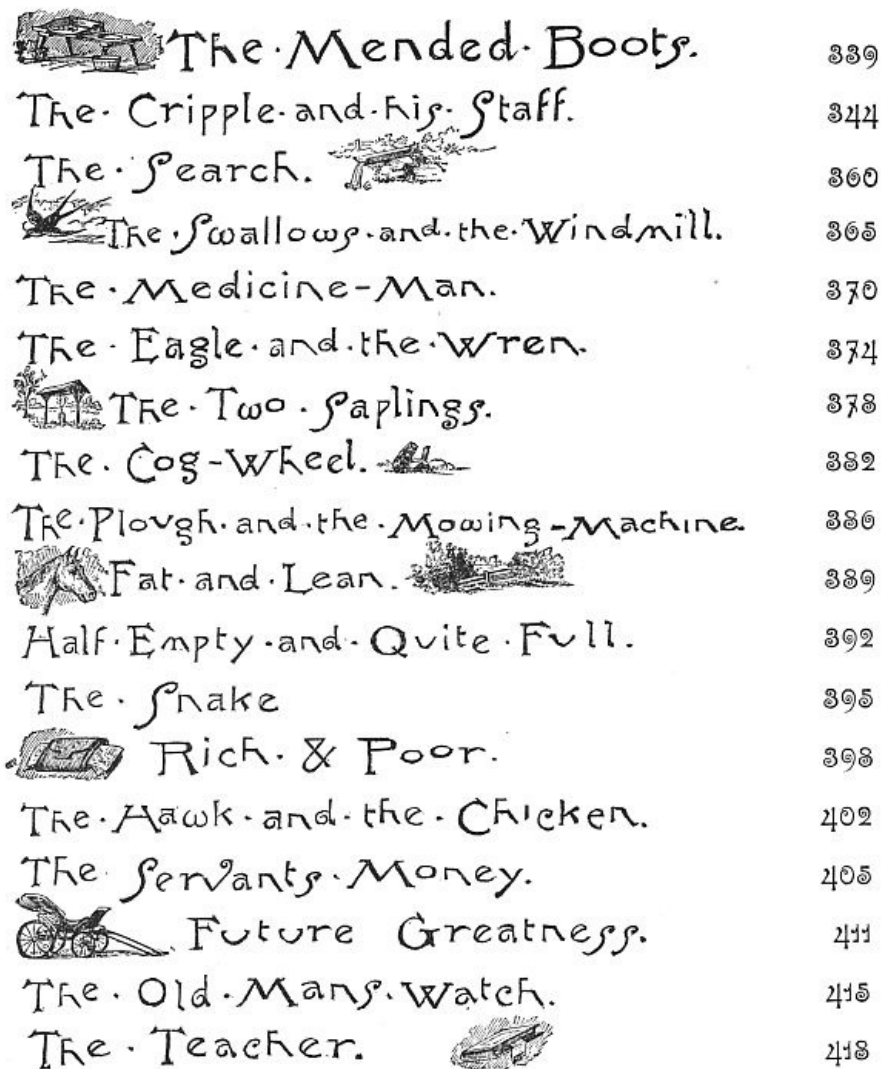 The · Mended · Boots. 339
The · Cripple · and · his · Staff. 344
The · Search. 360
The · Swallows · and · the · Windmill. 365
The · Medicine-Man. 370
The · Eagle · and · the · Wren. 374
The · Two · Saplings. 378
The · Cog-Wheel. 382
The · Plough · and · the · Mowing-Machine. 386
Fat · and · Lean. 389
Half · Empty · and · Quite · Full. 392
The · Snake 395
Rich · & Poor. 398
The · Hawk · and · the · Chicken. 402
The Servants · Money. 405
Future Greatness. 411
The · Old · Mans · Watch. 415
The · Teacher. 418